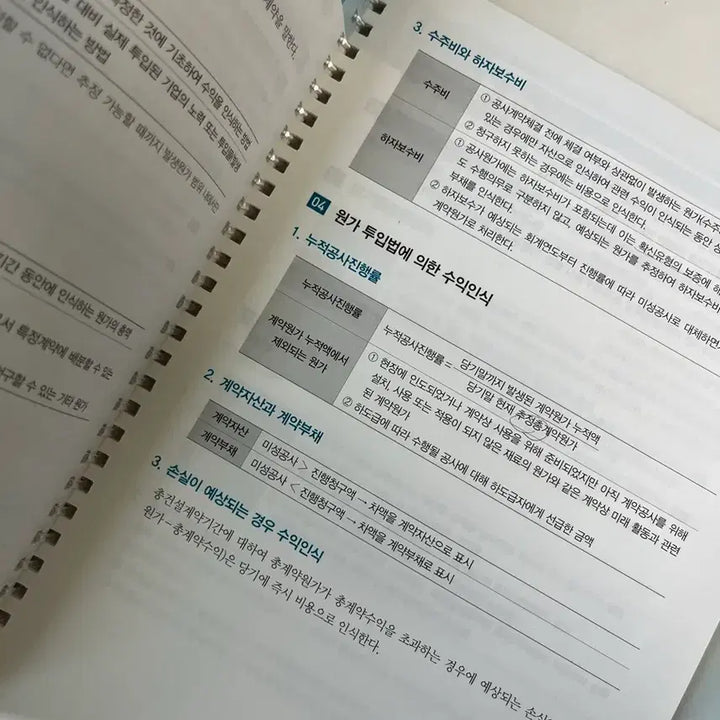 계약을 말한다.
정한 것에 기초하여 수익을 인식하는 방법
대비 실제 투입된 기업의 노력 또는 투입물
인식하는 방법
할 수 없다면 추정 가능할 때까지 발생원가 범위 내에서만
기간 동안에 인식하는 원가의 총액
로서 특정계약에 배분할 수 있는
청구할 수 있는 기타 원가
3. 수주비와 하자보수비
수주비
① 공사계약체결 전에 체결 여부와 상관없이 발생하는 원가(수주
있는 경우에만 자산으로 인식하여 관련 수익이 인식되는 동안
② 청구하지 못하는 경우에는 비용으로 인식한다.
하자보수비
① 공사원가에는 하자보수비가 포함되는데 이는 확신유형의 보증에 해
도 수행의무로 구분하지 않고, 예상되는 원가를 추정하여 하자보수비
부채를 인식한다.
② 하자보수가 예상되는 회계연도부터 진행률에 따라 미성공사로 대체하면
계약원가로 처리한다.
04 원가 투입법에 의한 수익인식
1. 누적공사진행률
누적공사진행률
누적공사진행률 = 당기말까지 발생된 계약원가 누적액
당기말 현재 추정총계약원가
계약원가 누적액에서
제외되는 원가
① 현장에 인도되었거나 계약상 사용을 위해 준비되었지만 아직 계약공사를 위해
설치, 사용 또는 적용이 되지 않은 재료의 원가와 같은 계약상 미래 활동과 관련
된 계약원가
② 하도급에 따라 수행될 공사에 대해 하도급자에게 선급한 금액
2. 계약자산과 계약부채
계약자산
미성공사 > 진행청구액 → 차액을 계약자산으로 표시
계약부채
미성공사 < 진행청구액 → 차액을 계약부채로 표시
3. 손실이 예상되는 경우 수익인식
총건설계약기간에 대하여 총계약원가가 총계약수익을 초과하는 경우에 예상되는 손실
원가-총계약수익)은 당기에 즉시 비용으로 인식한다.